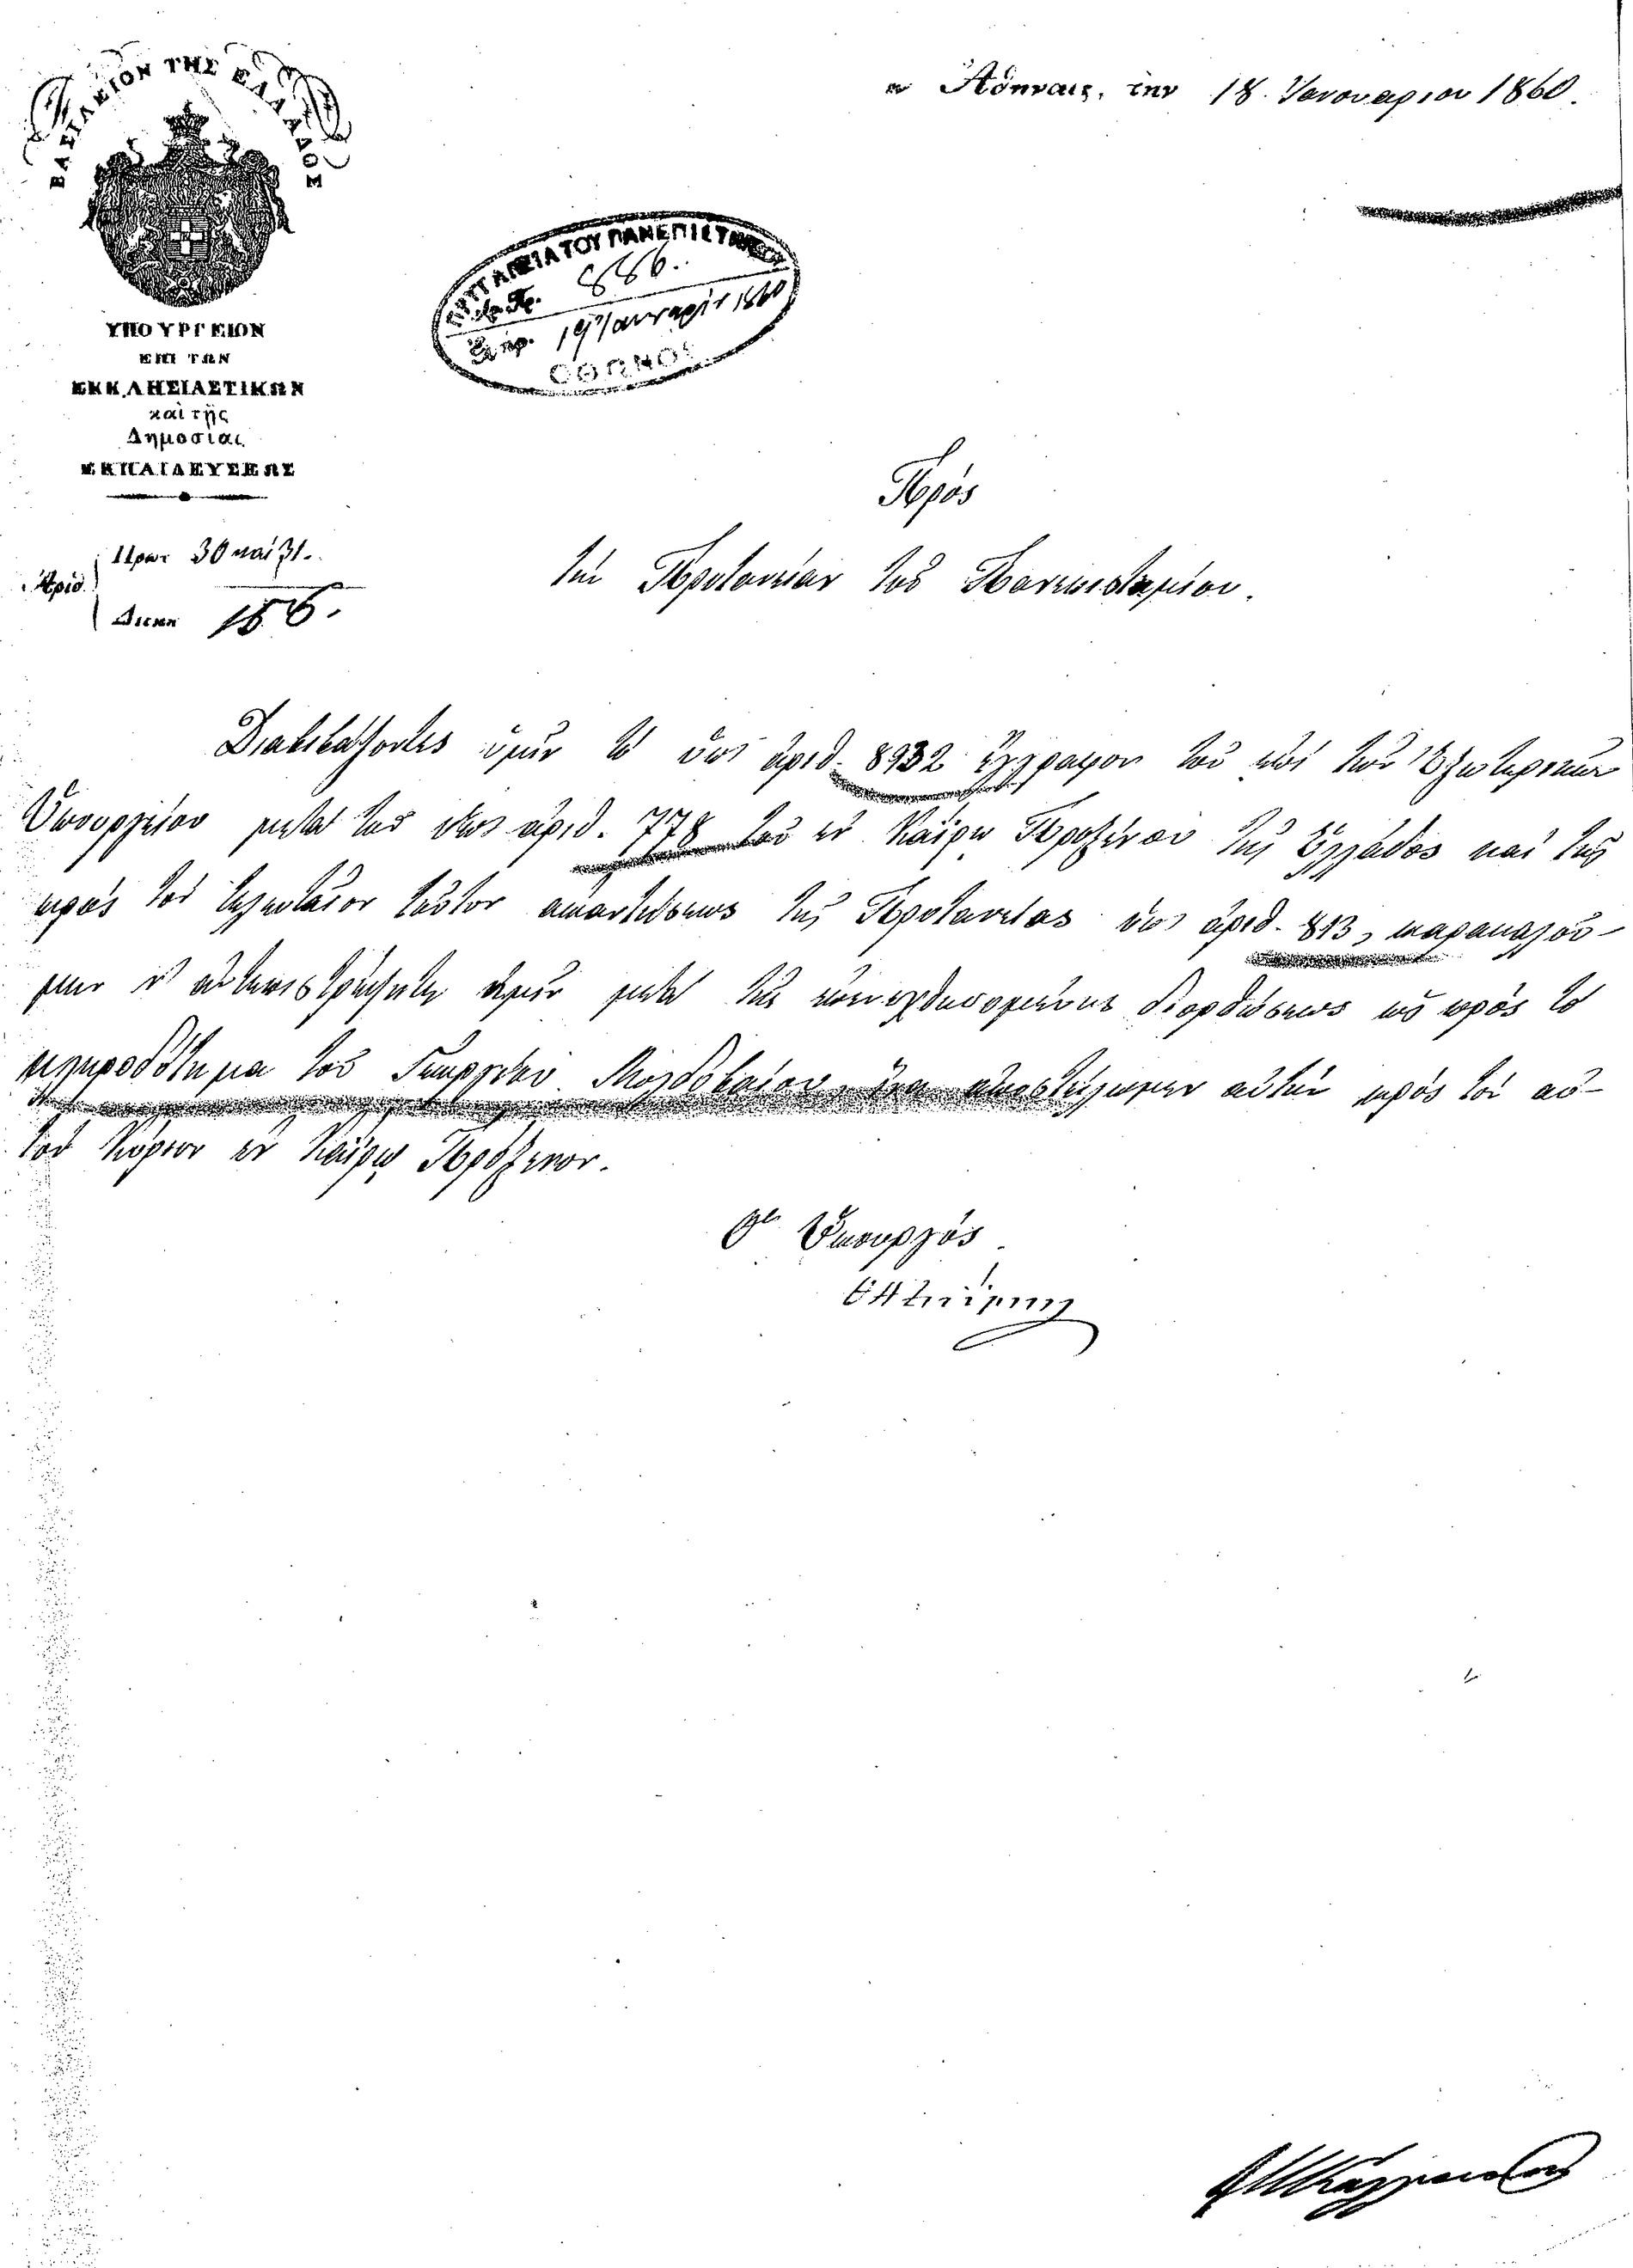 ΒΑΣΙΛΕΙΟΝ ΤΗΣ ΕΛΛΑΔΟΣ
ἐν Ἀθήναις, τὴν 18 Ἰανουαρίου 1860.
ΠΡΥΤΑΝΕΙΑ ΤΟΥ ΠΑΝΕΠΙΣΤΗΜΙΟΥ
Ἀρ. Πρ. 886.
19 Ἰανουαρίου 1860
ΟΘΩΝΟΣ
ΥΠΟΥΡΓΕΙΟΝ
ΕΠΙ ΤΩΝ
ΕΚΚΛΗΣΙΑΣΤΙΚΩΝ
καὶ τῆς
Δημοσίας
ΕΚΠΑΙΔΕΥΣΕΩΣ
Ἀριθ.
Πρωτ 30 καί 31.
Διεκπ 186.
Πρός
τὴν Πρυτανείαν τοῦ Πανεπιστημίου.
Διαβιβάζοντες ὑμῖν τὸ ὑπ' ἀριθ. 8932 ἔγγραφον τοῦ ἐπὶ τῶν Ἐξωτερικῶν
Ὑπουργείου μετὰ τοῦ ὑπ' ἀριθ. 778 τοῦ ἐν Καΐρῳ Προξένου τῆς Ἑλλάδος καὶ τῆς
πρὸς τὸν τελευταῖον τοῦτον ἀπαντήσεως τῆς Πρυτανείας ὑπ' ἀριθ. 813, παρακαλοῦ-
μεν ν' ἀντεπιστρέψητε ἡμῖν μετὰ τῆς διορθώσεως ὡς πρὸς τὸ
κληροδότημα τοῦ Γεωργίου ἵνα ἀποστείλωμεν αὐτὴν πρὸς τὸν αὐ-
τὸν Κύριον ἐν Καΐρῳ Πρόξενον.
Ὁ Ὑπουργός